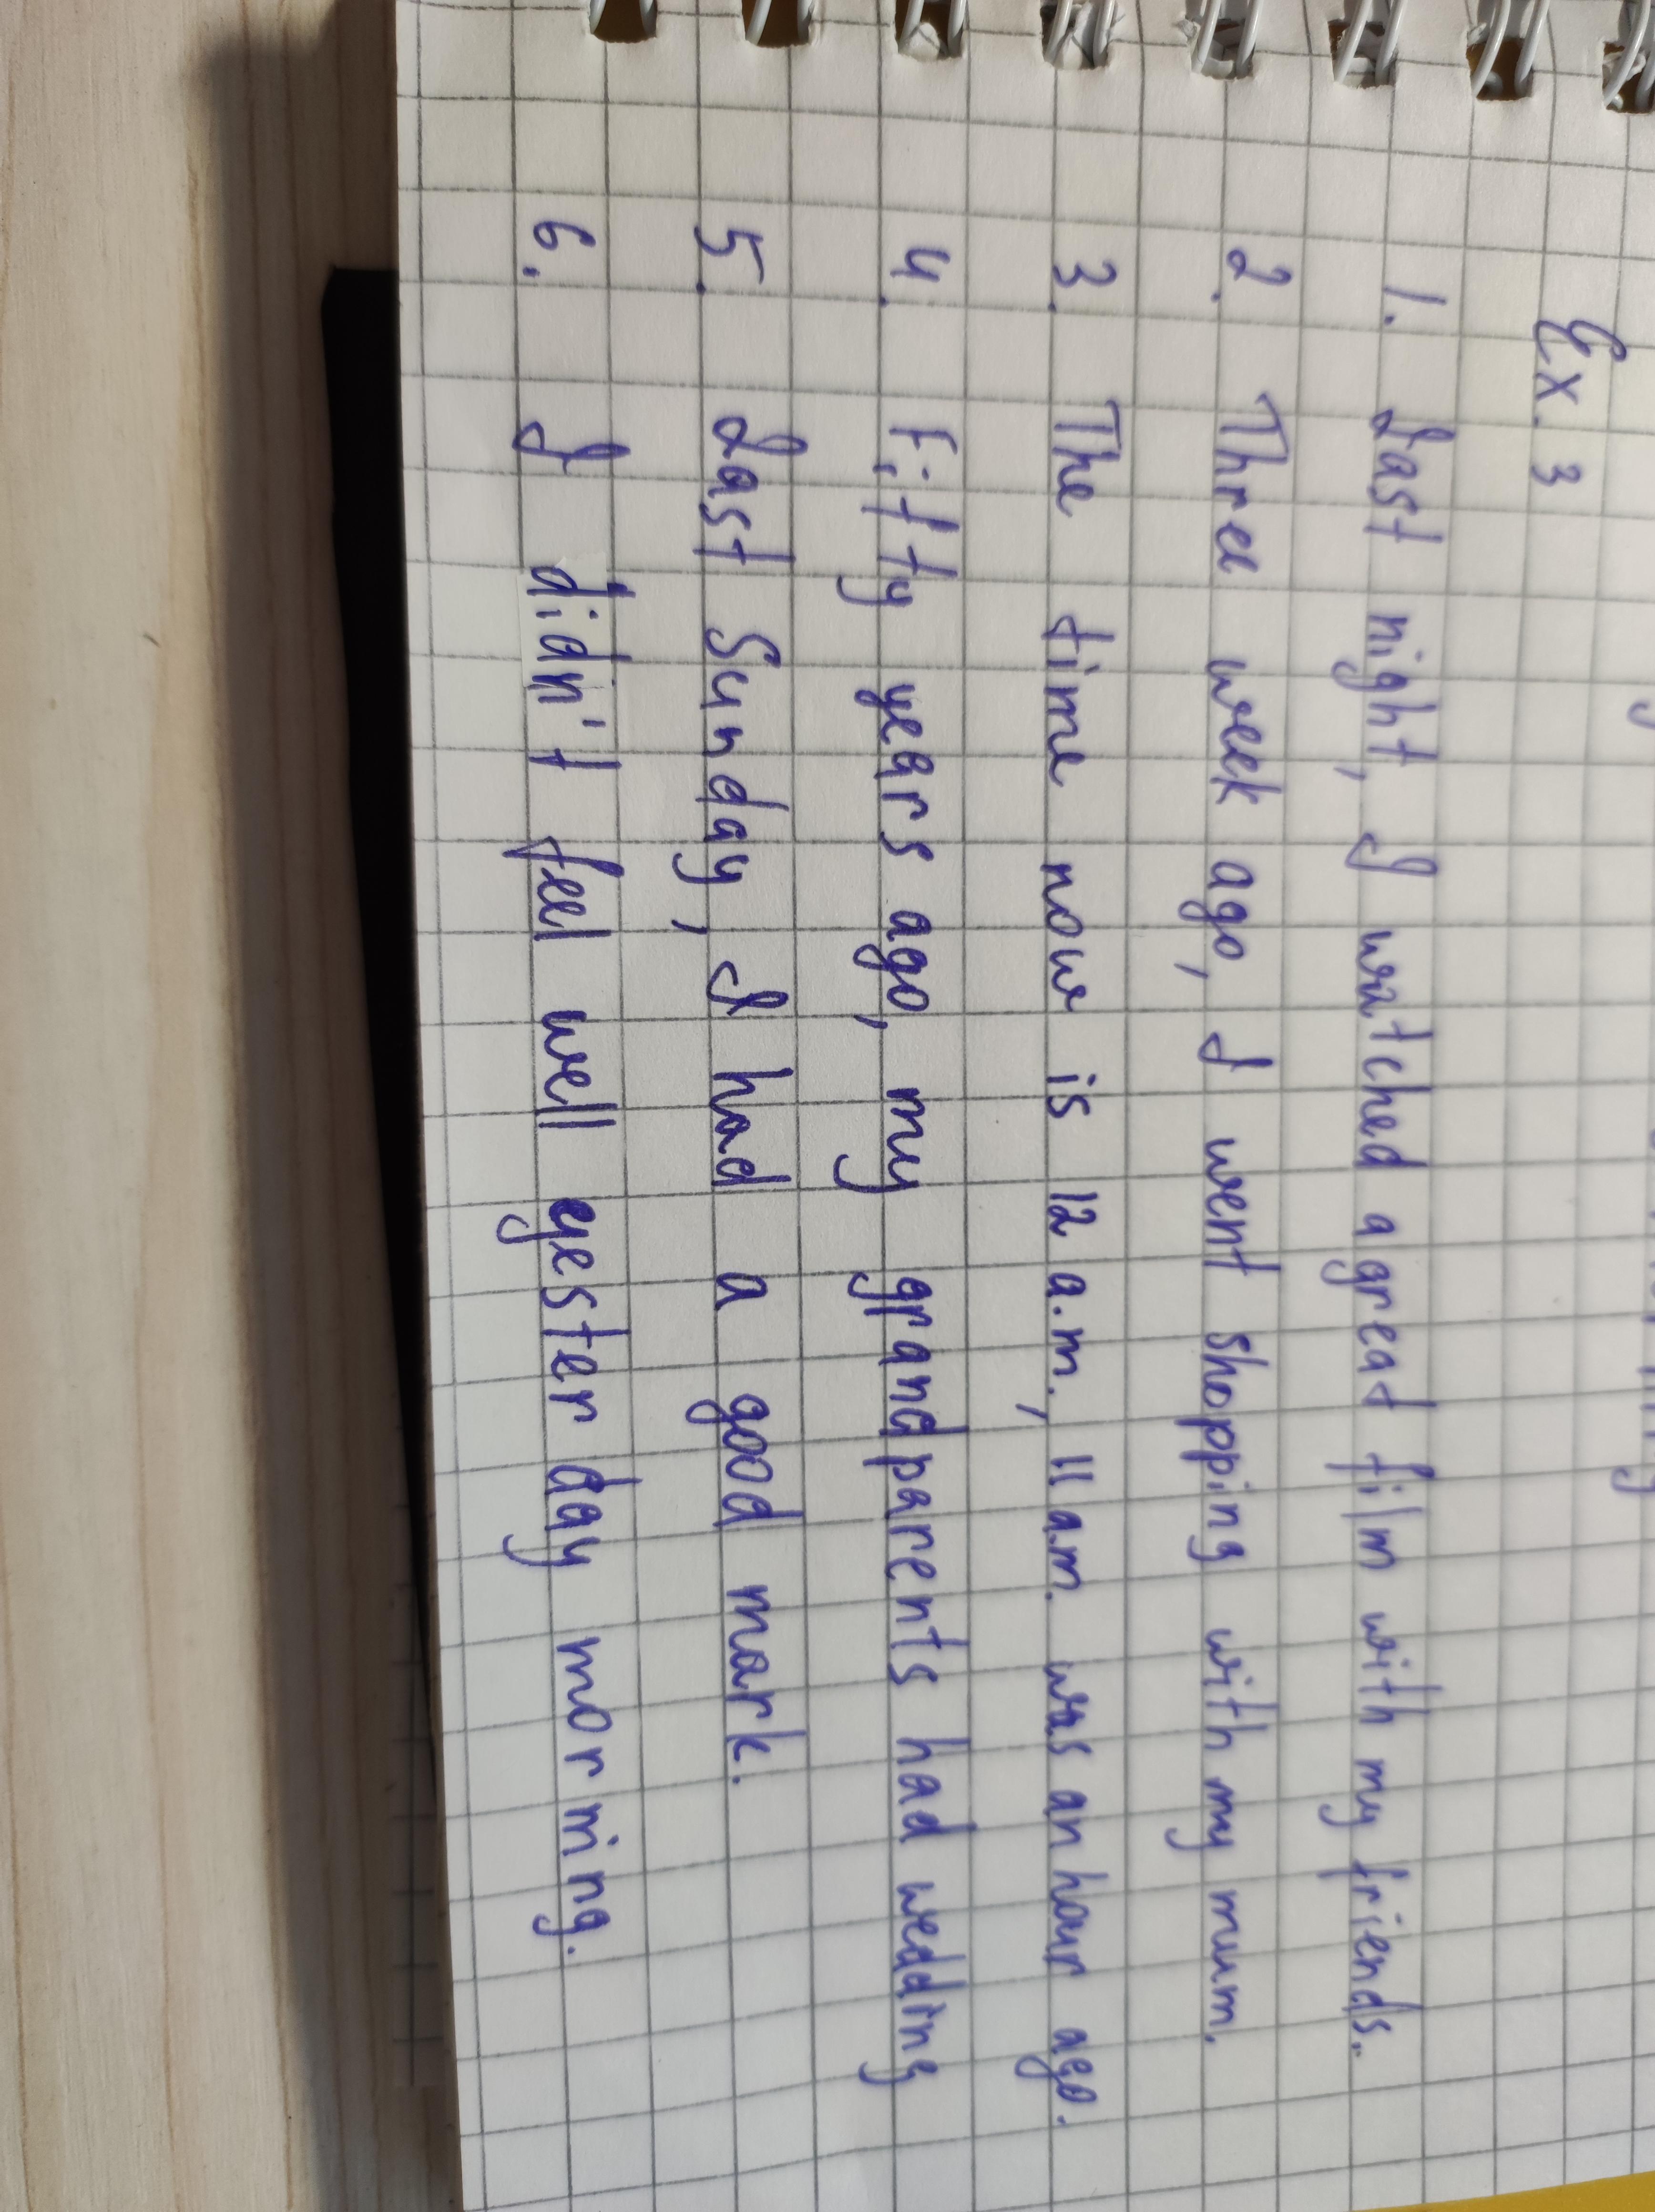 Ex. 3
1. Last night, I watched a great film with my friends.
2. Three week ago, I went shopping with my mum.
3. The time now is 12 a.m., 11 a.m. was an hour ago.
4. Fifty years ago, my grandparents had wedding
5. Last Sunday, I had a good mark.
6. I didn't feel well yesterday morning.